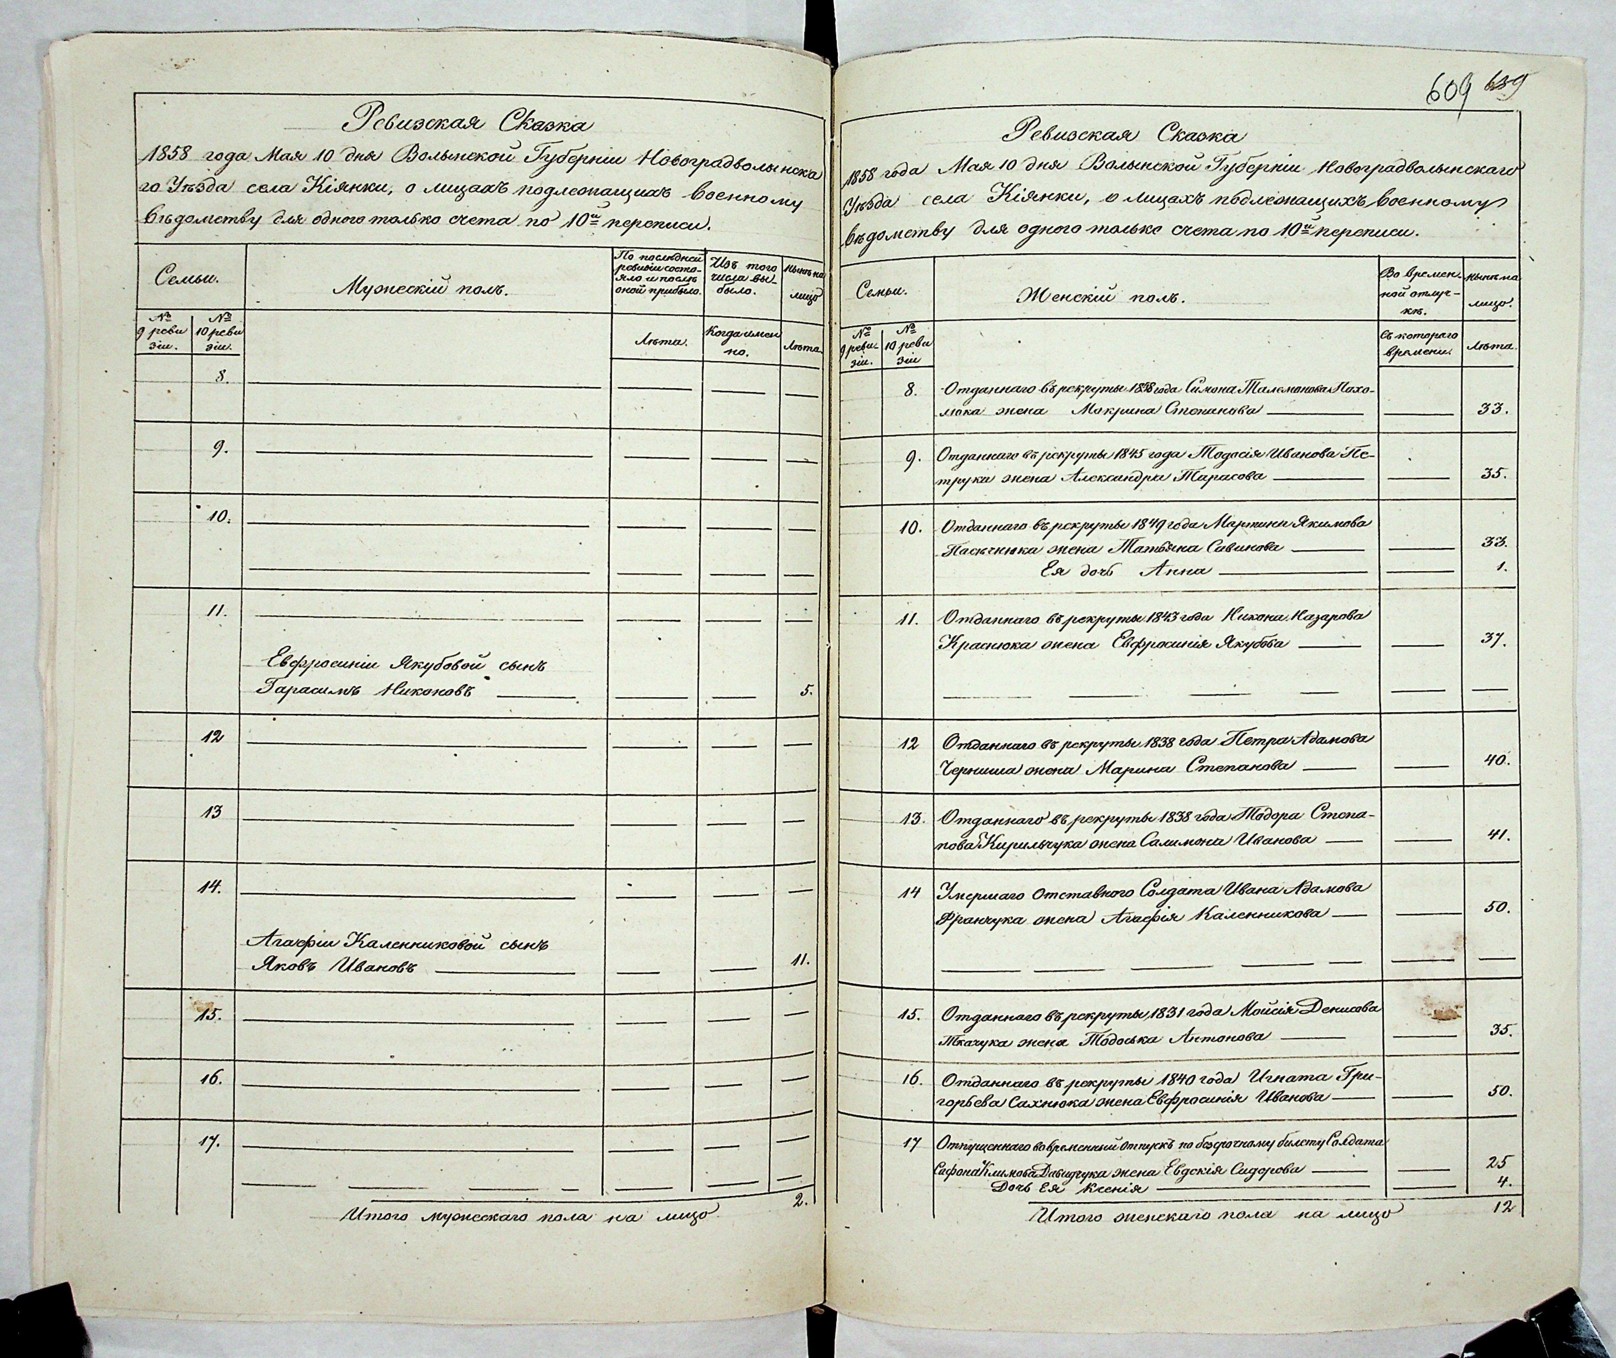 Ревизская Сказка
1858 года Мая 10 дня Волынской Губерніи Новоградволынска
го Уѣзда села Кіянки, о лицахъ подлежащихъ Военному
вѣдомству для одного только счета по 10й переписи.
Семьи.
Мужескій полъ.
По послѣдней ревизіи состояло и послѣ оной прибыло.
Изъ того числа выбыло.
Нынѣ на лицо
№ 9 ревизіи.
№ 10 ревизіи.
Лѣта.
Когда именно.
Лѣта.
8.
9.
10.
11.
Евфросиніи Якубовой сынъ
Гарасимъ Никоновъ 5.
12
13
14.
Агафіи Каленниковой сынъ
Яковъ Ивановъ 11.
15.
16.
17.
2.
Итого мужескаго пола на лицо
609 639
Ревизская Сказка
1858 года Мая 10 дня Волынской Губерніи Новоградволынскаго
Уѣзда села Кіянки, о лицахъ подлежащихъ Военному
вѣдомству для одного только счета по 10й переписи.
Семьи.
Женскій полъ.
Во времен-
ной отлуч-
кѣ.
Нынѣ на
лицо.
№ 9 ревизіи.
№ 10 ревизіи
Съ котораго
времени.
Лѣта.
8. Отданнаго въ рекруты года Симона Талимонова Пахо-
люка жена Макрина Степанова 33.
9. Отданнаго въ рекруты 1845 года Тодосія Иванова Пе-
трука жена Александра Тарасова 35.
10. Отданнаго въ рекруты 1849 года Мартина Якимова
Пасѣчнюка жена Татьяна Савинова 33.
Ея дочь Анна 1.
11. Отданнаго въ рекруты 1843 года Никона Назарова
Краснюка жена Евфросинія Якубова 37.
12 Отданнаго въ рекруты 1838 года Петра Адамова
Черниша жена Марина Степанова 40.
13. Отданнаго въ рекруты 1838 года Тодора Степа-
нова Кирильчука жена Салимона Иванова 41.
14 Умершаго отставного Солдата Ивана Адамова
Франчука жена Агафія Каленникова 50.
15. Отданнаго въ рекруты 1831 года Мойсія Денисова
Ткачука жена Тодоська Антонова 35.
16. Отданнаго въ рекруты 1840 года Игната Гри-
горьева Сахнюка жена Евфросинія Иванова 50.
17 Отпущеннаго во временный отпускъ по безсрочному билету Солдата
Сафона Климова Давидчука жена Евдокія Сидорова 25
Дочь Ея Ксенія 4.
Итого женскаго пола на лицо 12